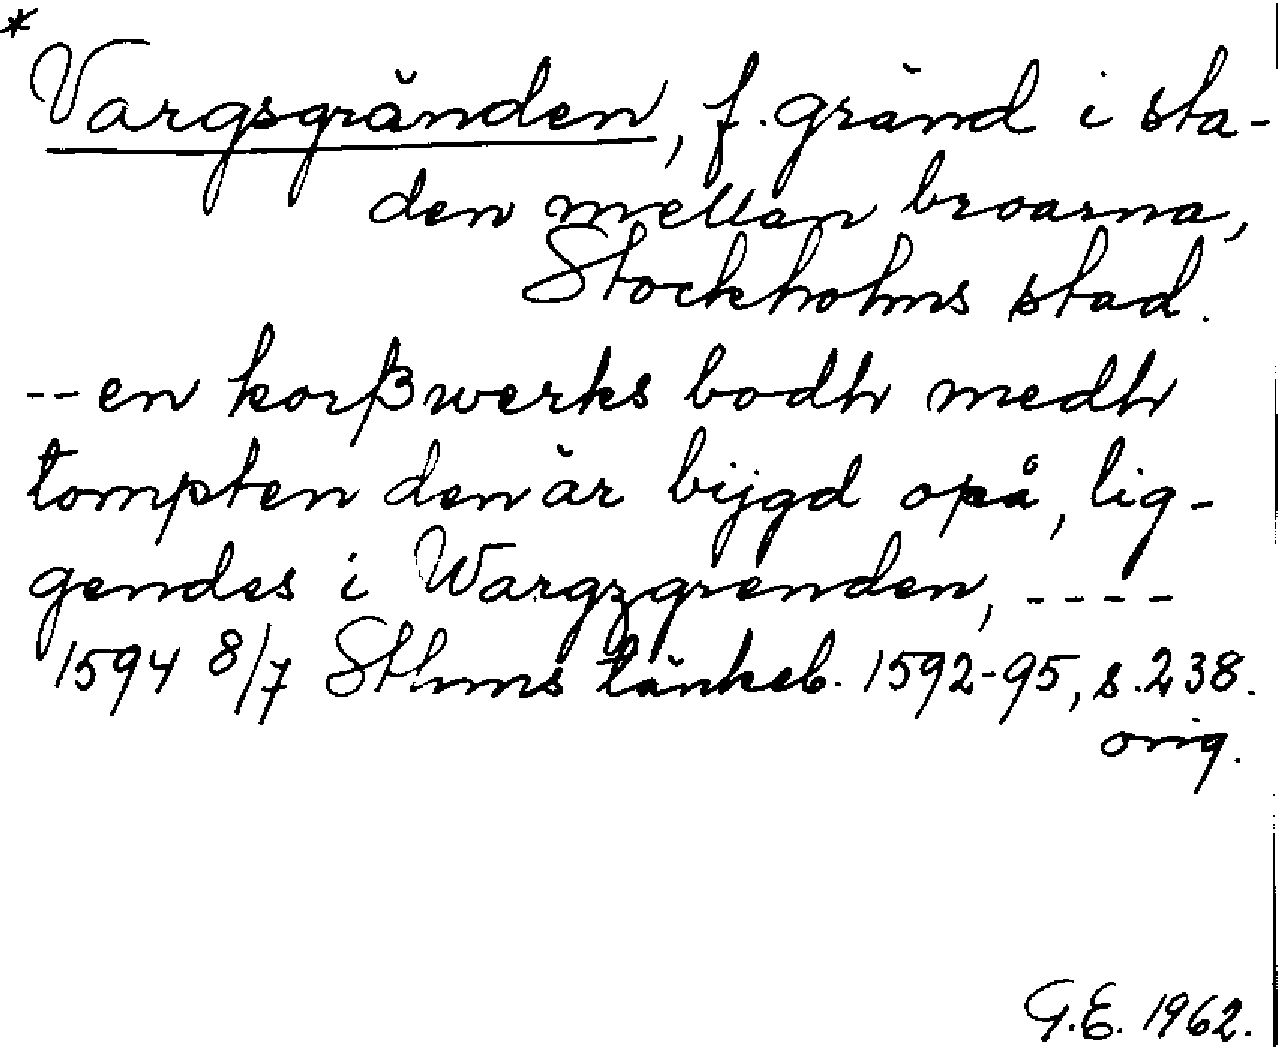 *
Vargsgränden, f. gränd i sta-
den mellan broarna,
Stockholms stad.
--en korßwerks bodh medh
tompten den är bijgd opå, lig-
gendes i Wargzgrenden, ----
1594 8/7 Sthms tänkeb. 1592-95, s.238.
orig.
G.E. 1962.